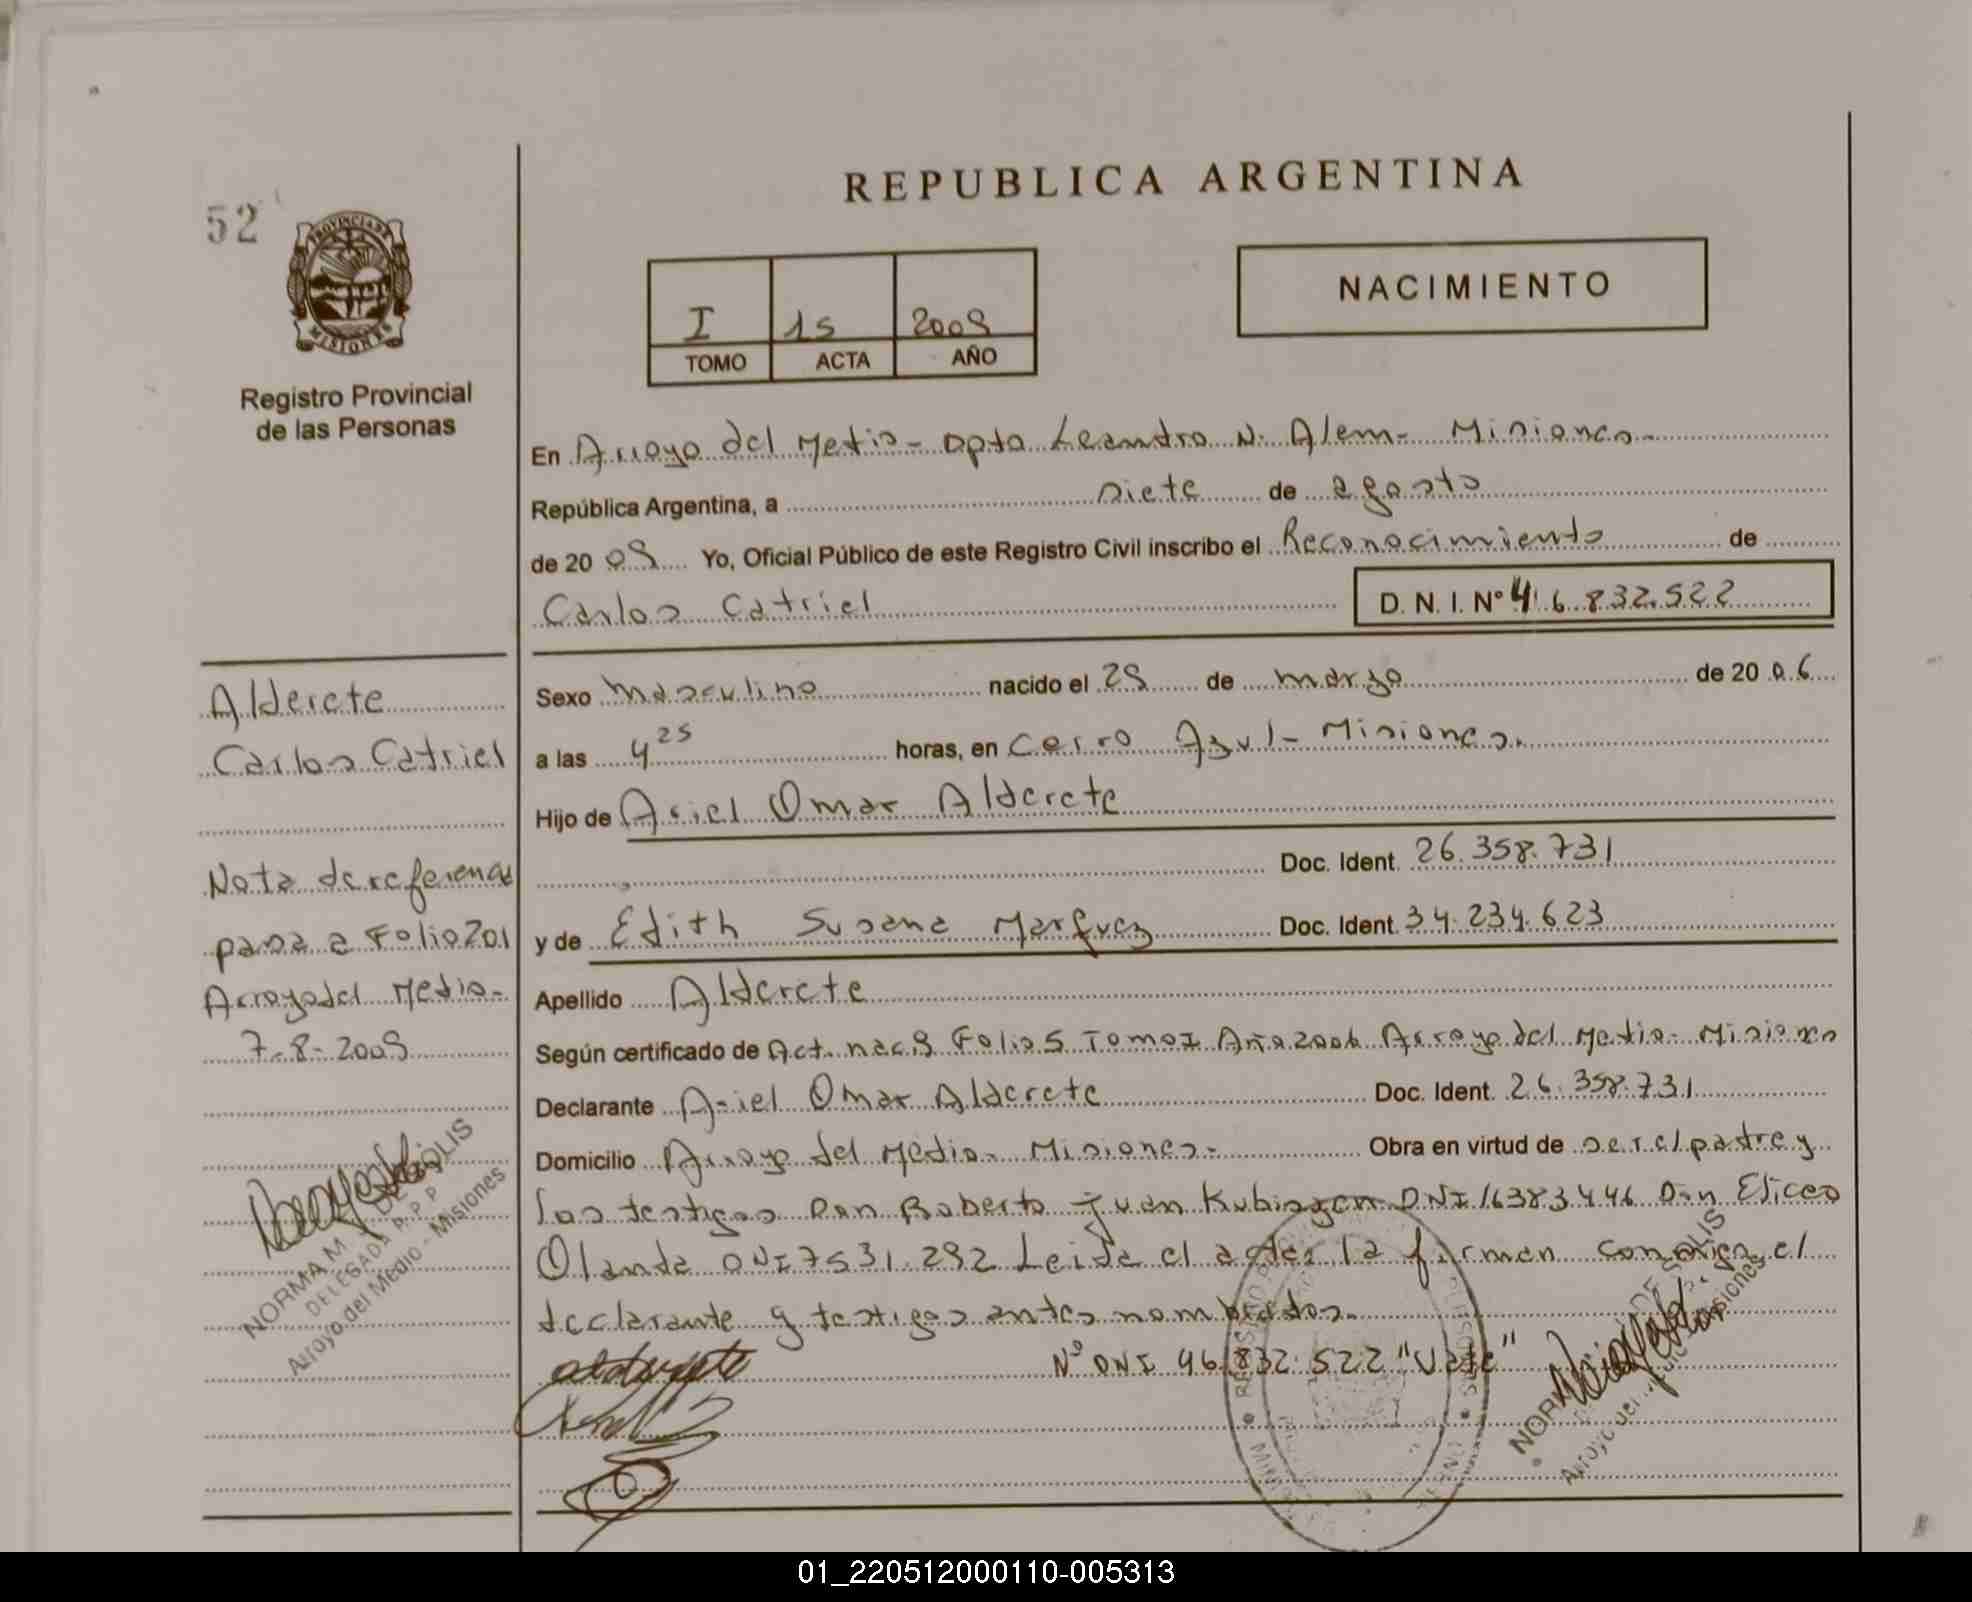 REPUBLICA ARGENTINA
52
PROVINCIA DE
MISIONES
Registro Provincial
de las Personas
I 15 2009
TOMO ACTA AÑO
NACIMIENTO
En Arroyo del Medio - Dpto Leandro N. Alem - Misiones.
República Argentina, a siete de agosto
de 2009 Yo, Oficial Público de este Registro Civil inscribo el Reconocimiento de
Carlos Catriel D. N. I. Nº 46.832.522
Sexo masculino nacido el 29 de marzo de 2006
a las 4 25 horas, en Cerro Azul - Misiones.
Hijo de Ariel Omar Alderete
Doc. Ident. 26.358.731
y de Edith Susana Marquez Doc. Ident. 34.234.623
Apellido Alderete
Según certificado de Act. nac. 9 Folio 5 Tomo I Año 2006 Arroyo del Medio - Misiones
Declarante Ariel Omar Alderete Doc. Ident. 26.358.731
Domicilio Arroyo del Medio - Misiones - Obra en virtud de ser el padre y
los testigos Don Roberto Juan DNI 16383446 Don Eliceo
Olanda DNI 7531.292 Leida el acta la firman conmigo el
declarante y testigos antes nombrados.
Nº DNI 46.832.522 "Vale"
Alderete
Carlos Catriel
Nota de referencia
pasa a Folio 201
Arroyo del Medio -
7-8-2009
NORMA M. DE SOLIS
DELEGADA R.P.P.
Arroyo del Medio - Misiones
01_220512000110-005313